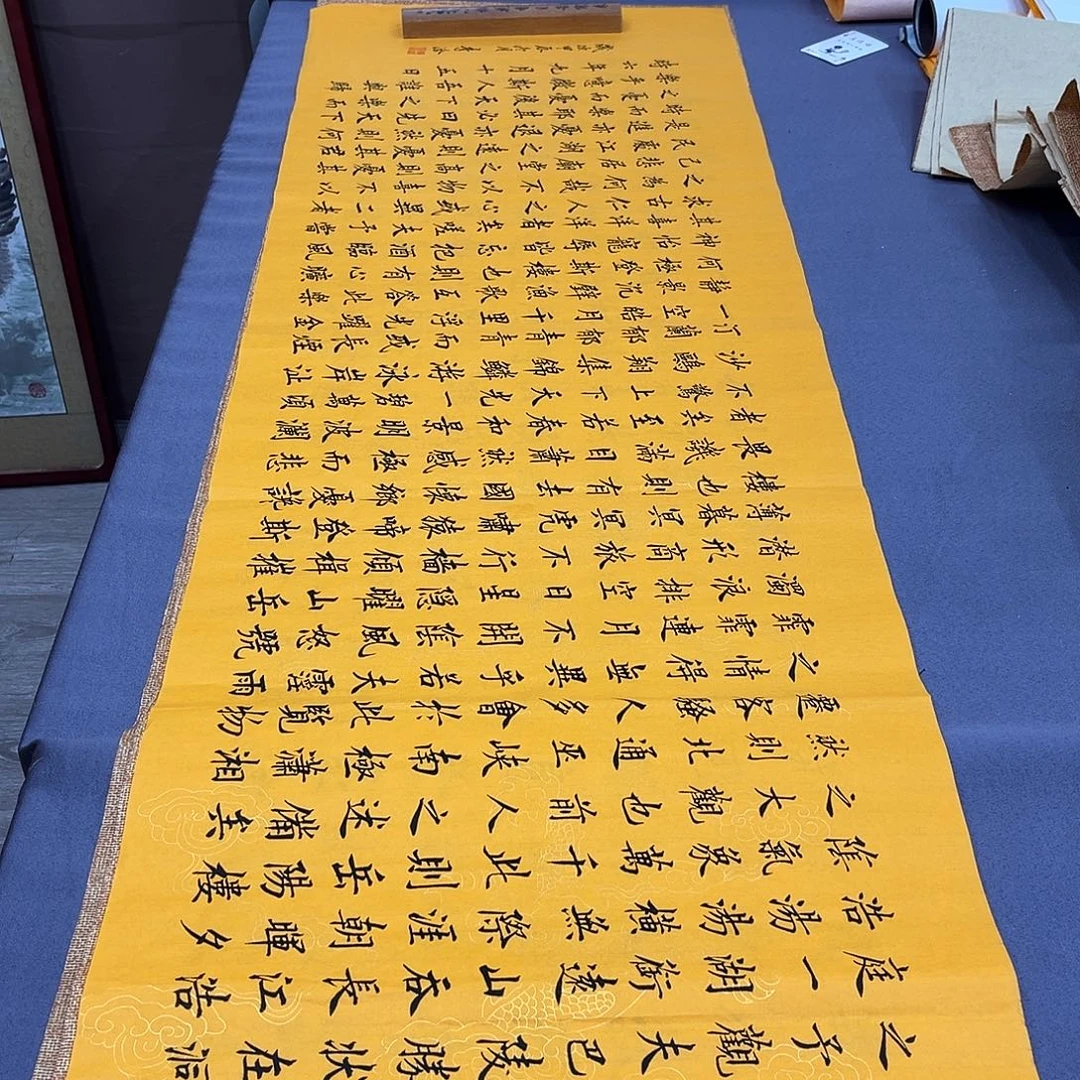 之予觀夫巴陵勝狀在洞
庭一湖銜遠山吞長江浩
浩湯湯橫無際涯朝暉夕
陰氣象萬千此則岳陽樓
之大觀也前人之述備矣
然則北通巫峽南極瀟湘
遷客騷人多會於此覽物
之情得無異乎若夫霪雨
霏霏連月不開陰風怒號
濁浪排空日星隱曜山岳
潛形商旅不行檣傾楫摧
薄暮冥冥虎嘯猿啼登斯
樓也則有去國懷鄉憂讒
畏譏滿目蕭然感極而悲
者矣至若春和景明波瀾
不驚上下天光一碧萬頃
沙鷗翔集錦鱗游泳岸芷
汀蘭郁郁青青而或長煙
一空皓月千里浮光躍金
靜影沉璧漁歌互答此樂
何極登斯樓也則有心曠
神怡寵辱皆忘把酒臨風
其喜洋洋者矣嗟夫予嘗
求古仁人之心或異二者
之為何哉不以物喜不以
己悲居廟堂之高則憂其
民處江湖之遠則憂其君
是進亦憂退亦憂然則何
時而樂耶其必曰先天下
之憂而憂後天下之樂而
樂乎噫微斯人吾誰與歸
時六年九月十五日
歲次甲辰六月